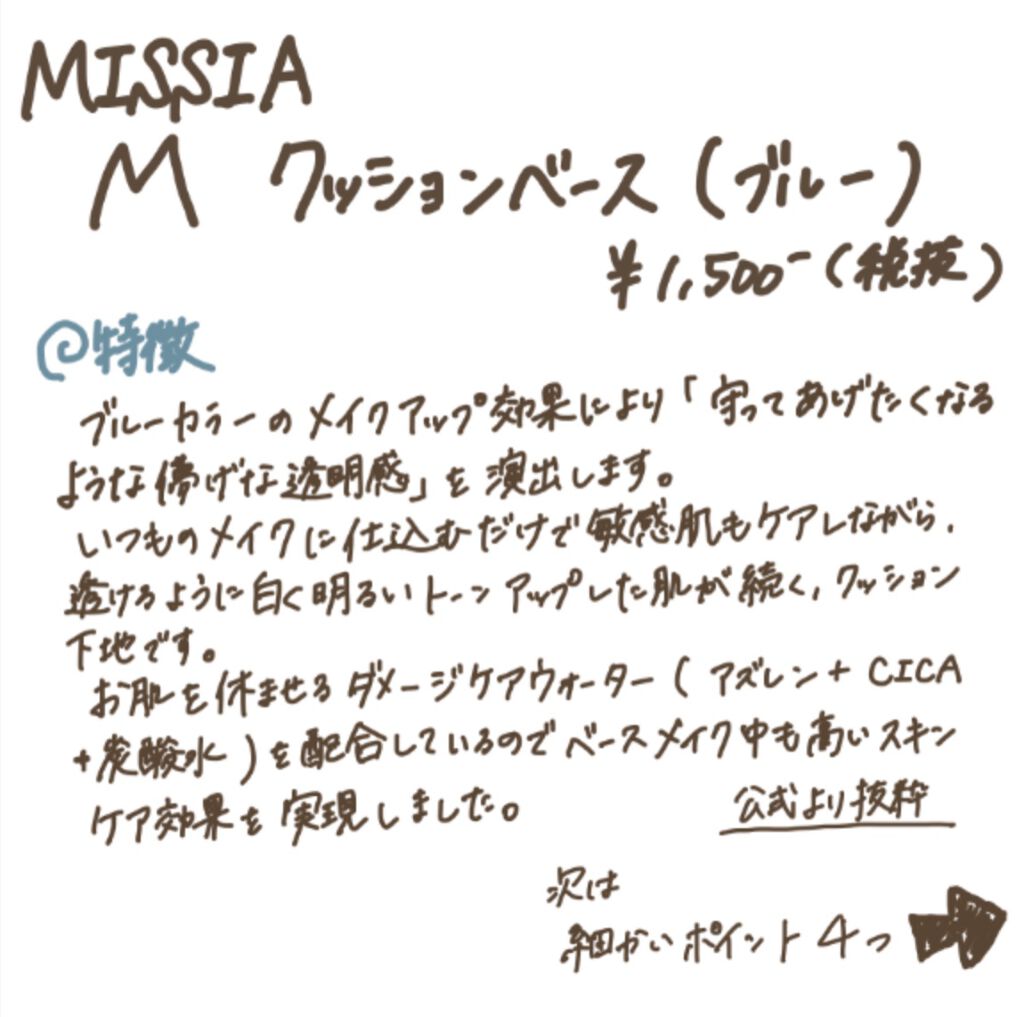 MISSIA
M クッションベース(ブルー)
¥1,500-(税抜)
@特徴
ブルーカラーのメイクアップ効果により「守ってあげたくなる
ような儚げな透明感」を演出します。
いつものメイクに仕込むだけで敏感肌もケアしながら、
透けるように白く明るいトーンアップした肌が続く、クッション
下地です。
お肌を休ませるダメージケアウォーター(アズレン+CICA
+炭酸水)を配合しているのでベースメイク中も高いスキン
ケア効果を実現しました。
公式より抜粋
次は
細かいポイント4つ